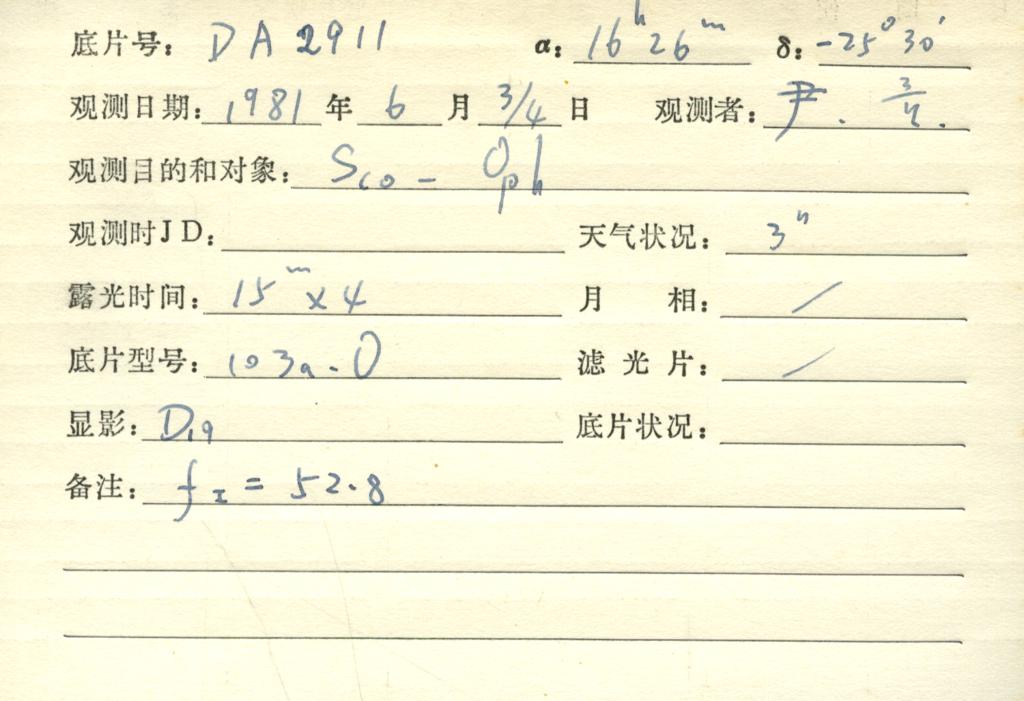 底片号: DA2911 α: 16ʰ26ᵐ δ: -25°30′
观测日期: 1981 年 6 月 3/4 日 观测者: 尹.
观测目的和对象: Sco - Oph
观测时JD: 天气状况: 3ⁿ
露光时间: 15ᵐ×4 月 相: /
底片型号: 103a-O 滤光片: /
显影: D19 底片状况:
备注: f_I = 52.8